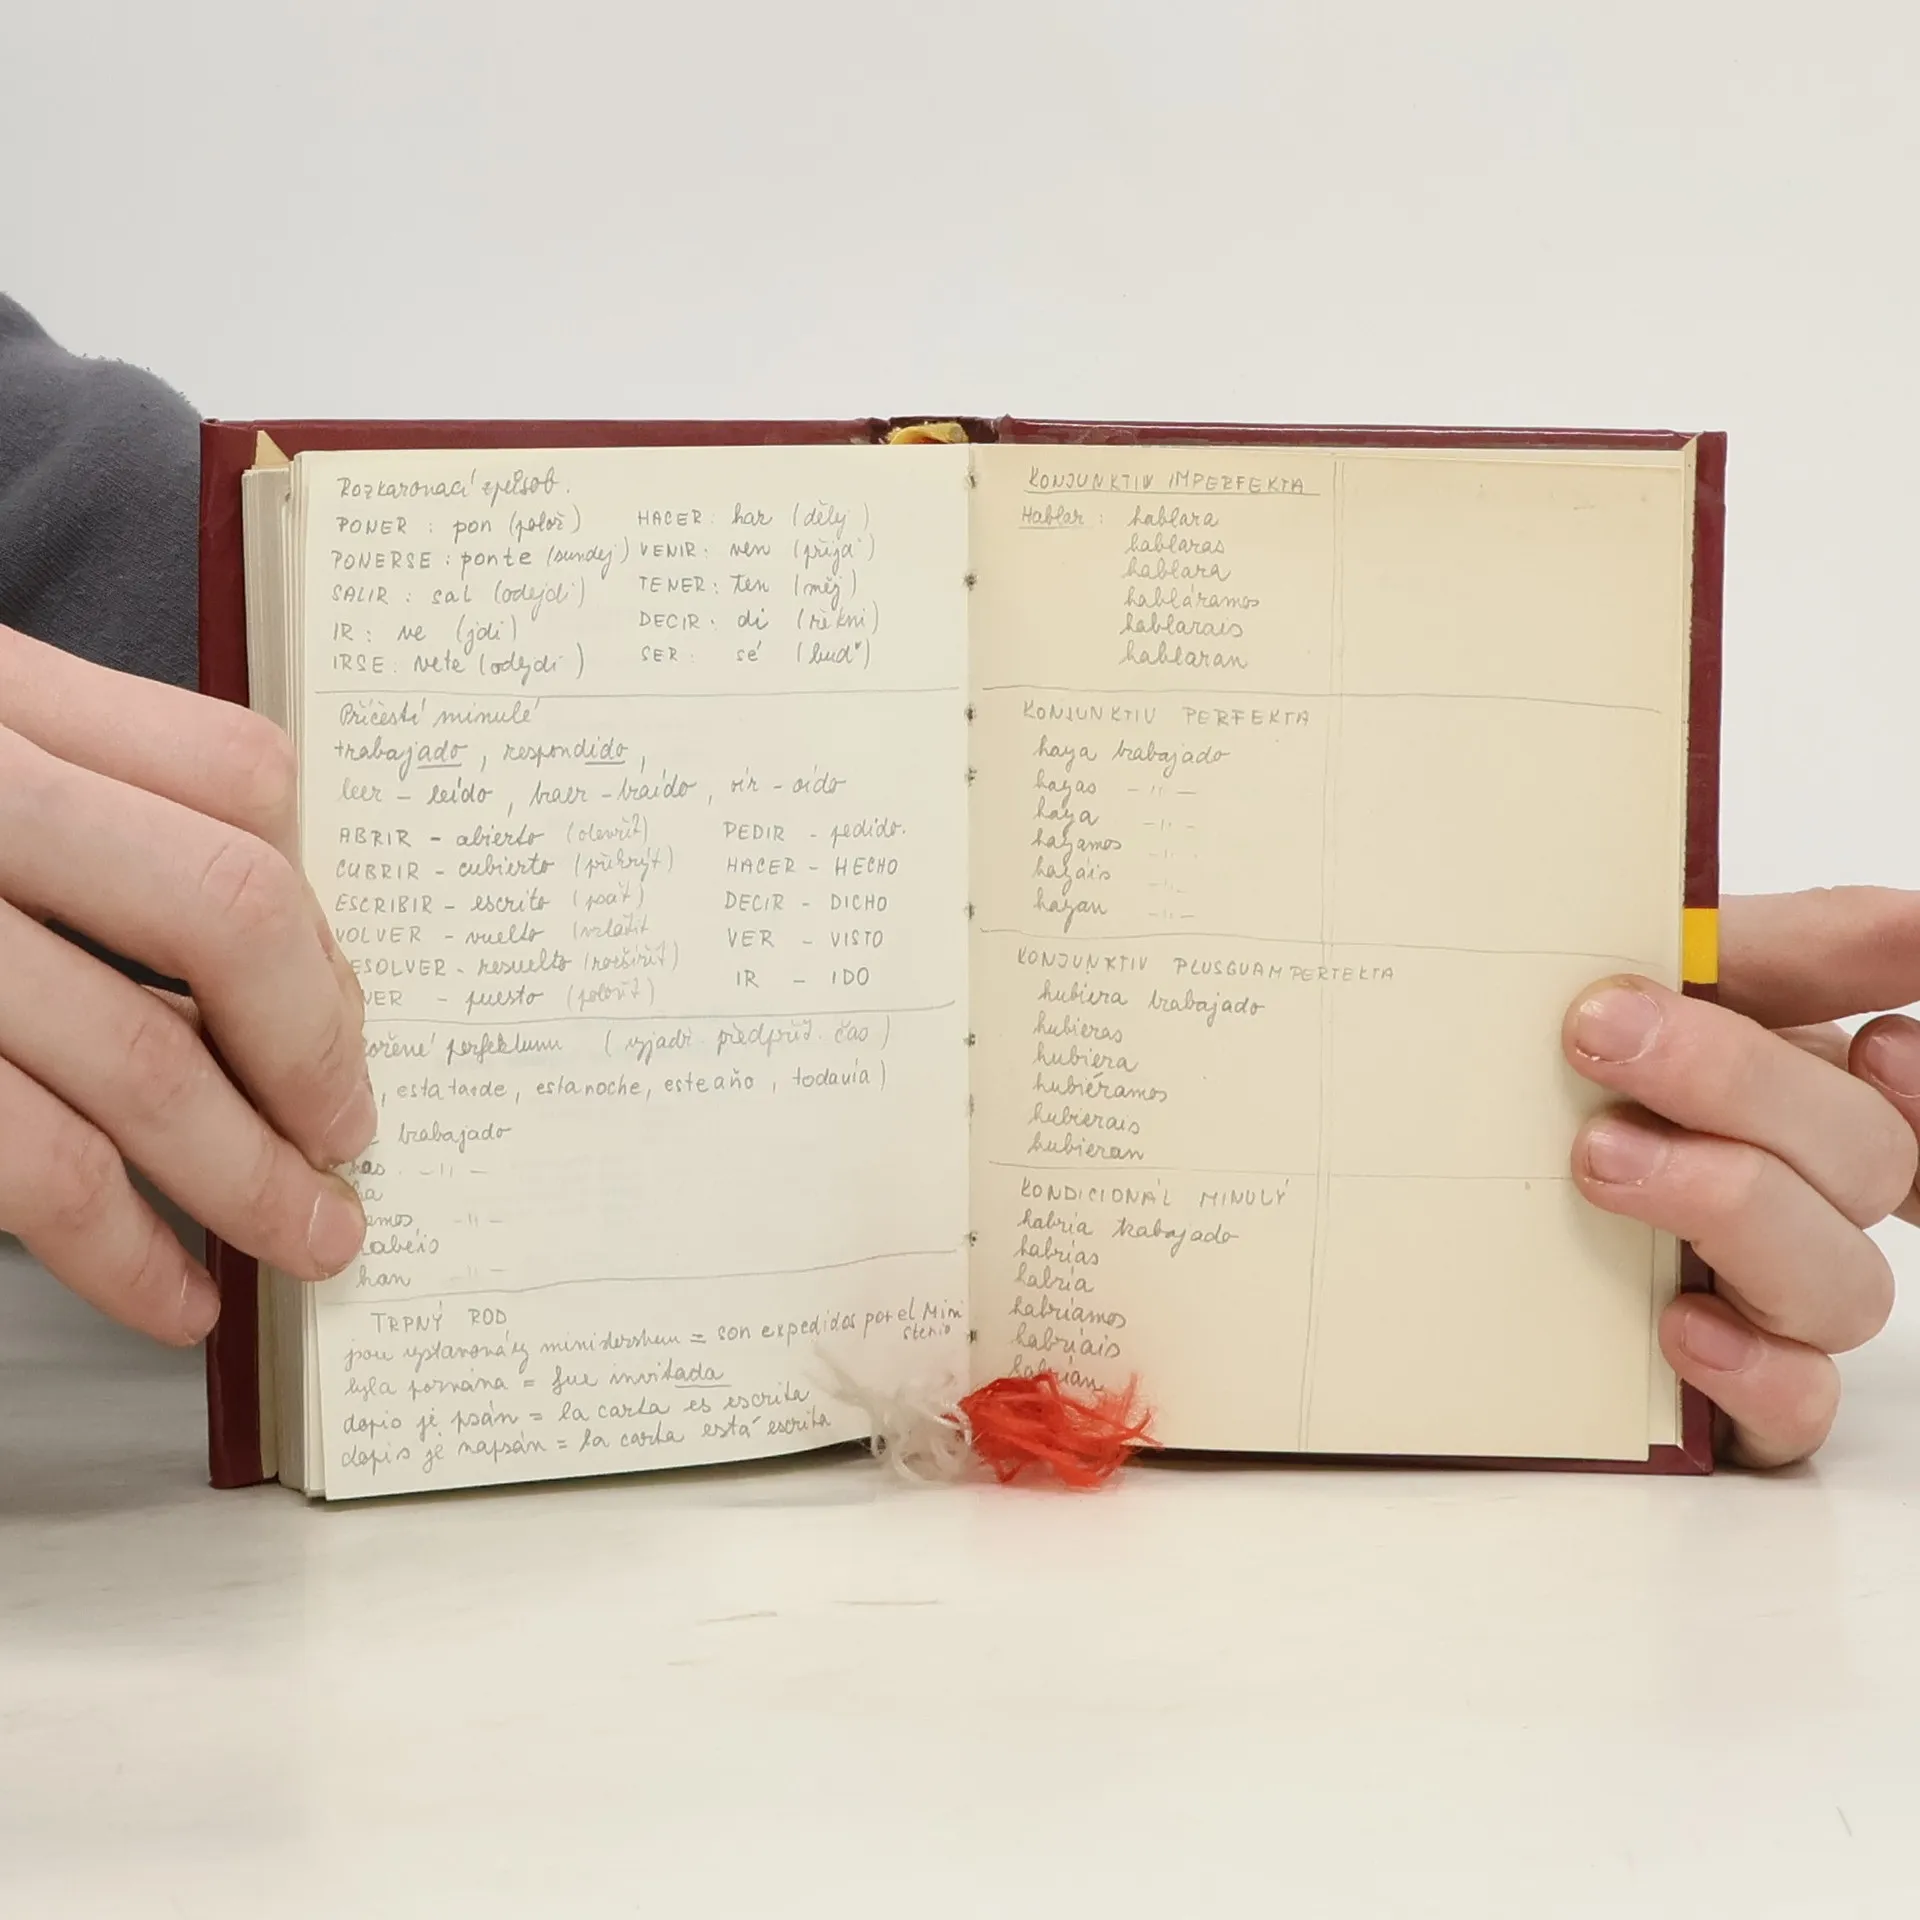 Rozkazovací způsob.
PONER : pon (polož)
PONERSE : ponte (sundej)
SALIR : sal (odejdi)
IR : ve (jdi)
IRSE : vete (odejdi)
HACER : haz (dělej)
VENIR : ven (přijď)
TENER : ten (měj)
DECIR : di (řekni)
SER : sé (buď)
Příčestí minulé
trabajado , respondido ,
leer - leído , traer - traído , oír - oído
ABRIR - abierto (otevřít)
CUBRIR - cubierto (přikrýt)
ESCRIBIR - escrito (psát)
VOLVER - vuelto (vrátit
ESOLVER - resuelto
NER - puesto (položit)
PEDIR - pedido.
HACER - HECHO
DECIR - DICHO
VER - VISTO
IR - IDO
perfektum ( vyjadř. předpřít. čas )
, esta tarde , esta noche , este año , todavía )
trabajado
has - 11 -
ha
emos - 11 -
abéis
han - 11 -
TRPNÝ ROD
jsou ministerstvem = son expedidos por el Mini
sterio
byla pozvána = fue invitada
dopis je psán = la carta es escrita
dopis je napsán = la carta está escrita
KONJUNKTIV IMPERFEKTA
Hablar : hablara
hablaras
hablara
habláramos
hablarais
hablaran
KONJUNKTIV PERFEKTA
haya trabajado
hayas - 11 -
haya - 11 -
hayamos - 11 -
hayáis - 11 -
hayan - 11 -
KONJUNKTIV PLUSGUAMPERTEKTA
hubiera trabajado
hubieras
hubiera
hubiéramos
hubierais
hubieran
KONDICIONÁL MINULÝ
habría trabajado
habrías
habría
habríamos
habríais
habrían